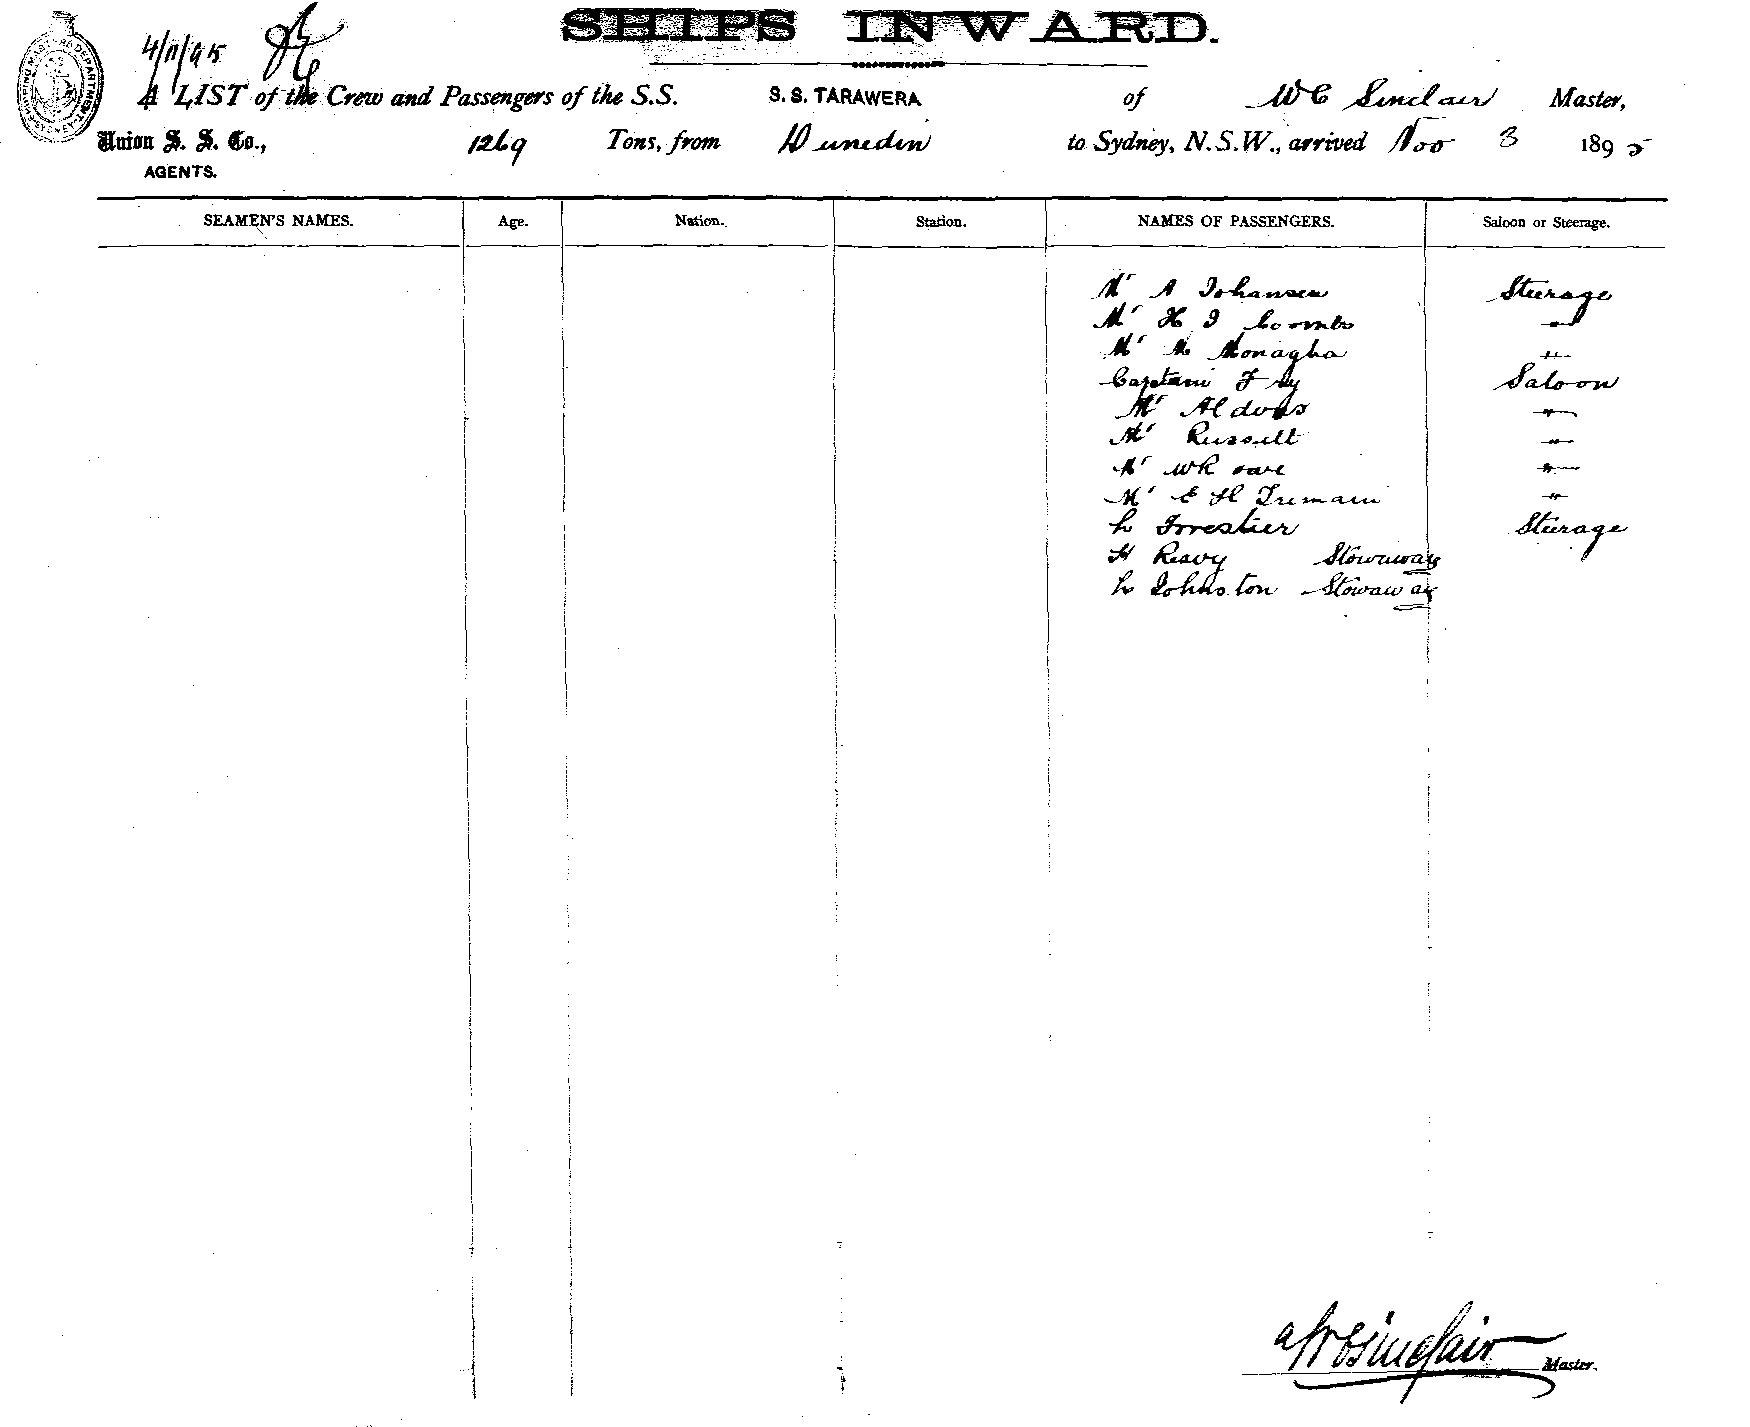 SHIPS INWARD.
4/11/95
A LIST of the Crew and Passengers of the S.S. S.S. TARAWERA of W C Sinclair Master,
Union S. S. Co., 1269 Tons, from Dunedin to Sydney, N.S.W., arrived Nov 3 1895
AGENTS.
SEAMEN'S NAMES. Age. Nation. Station. NAMES OF PASSENGERS. Saloon or Steerage.
Mr A Johansen Steerage
Mr H J Coombs "
Mr M Monagha "
Captain Fry Saloon
Mr Aldous "
Mr Russell "
Mr W R "
Mr E H Tremain "
Forrestier Steerage
H Reavy Stowaway
Johnston Stowaway
Sinclair Master.